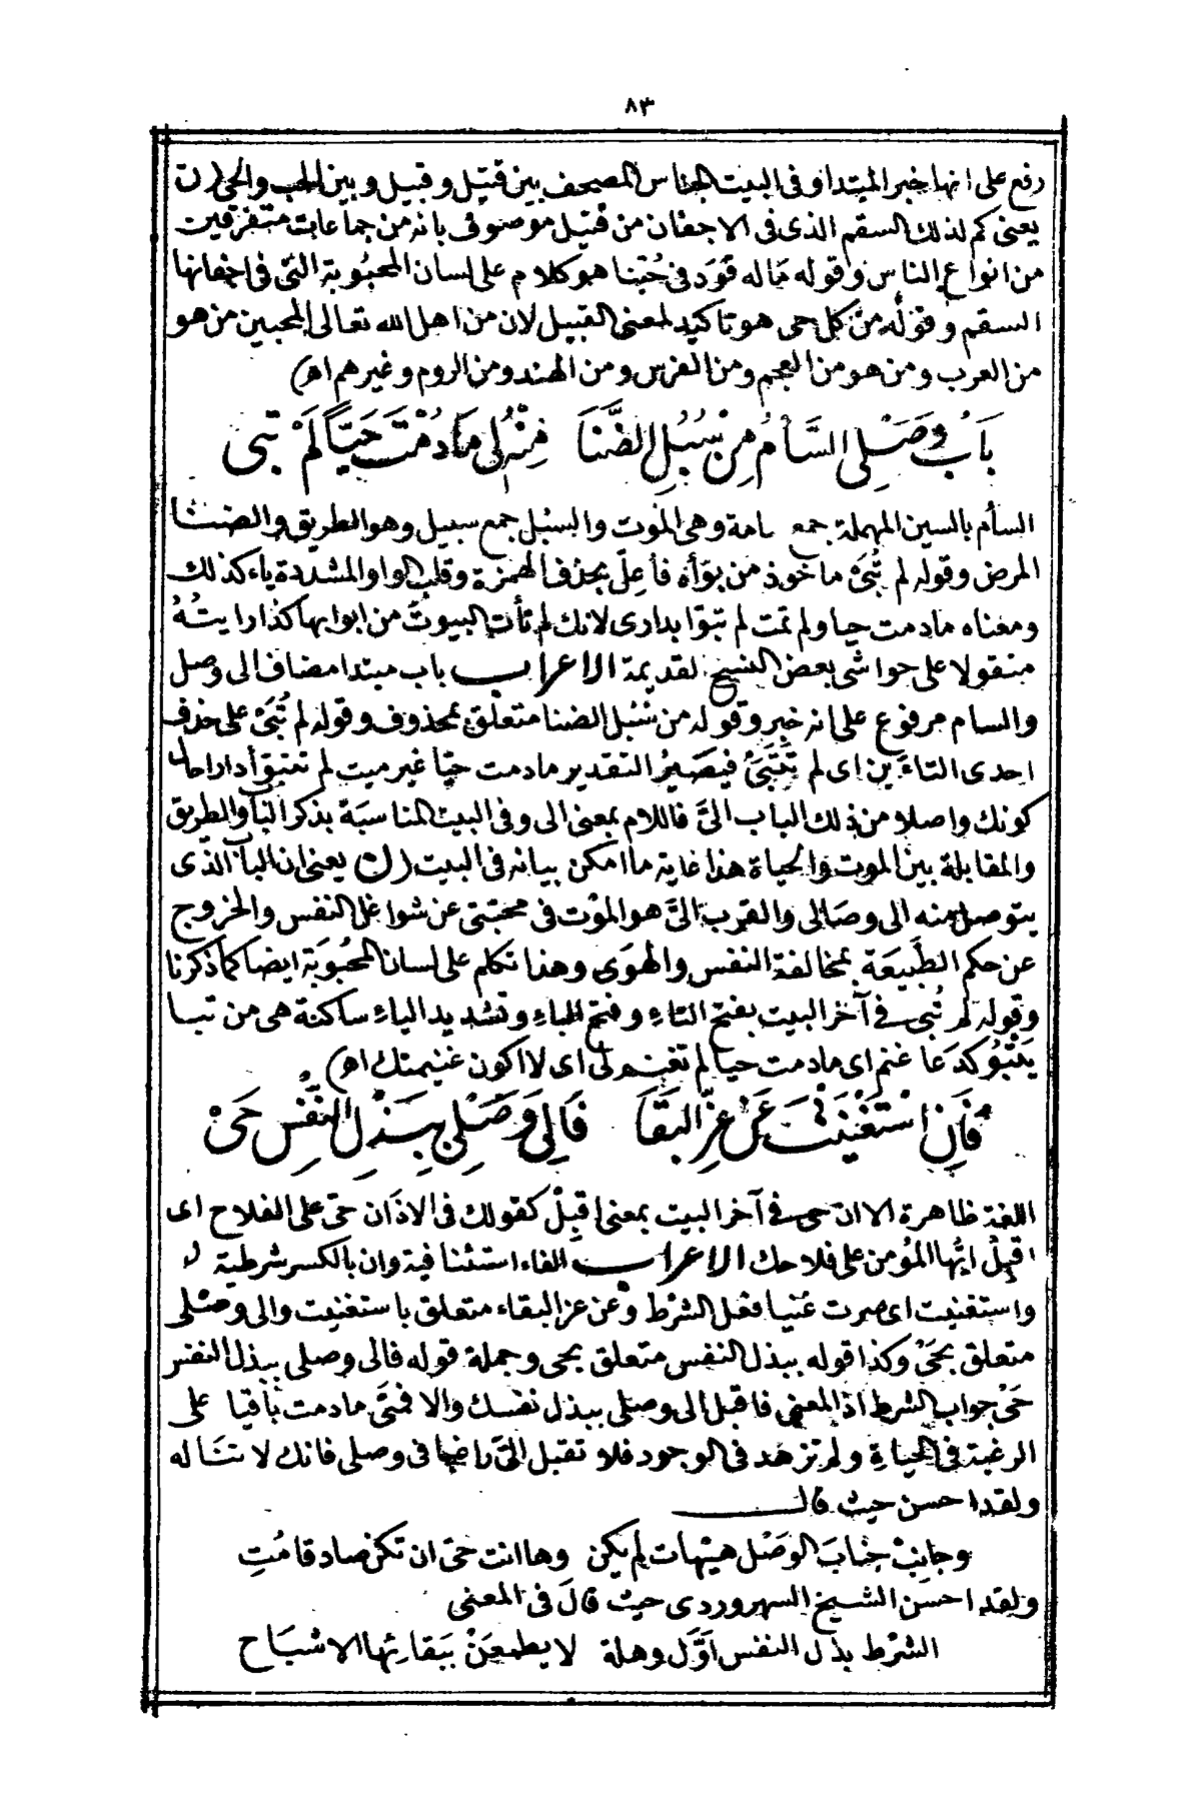 ٨٣
رفع على انها خبر المبتدا وفى البيت الجناس المصحف بين قتيل وقبيل وبين الحب والحى (ن
يعنى كم لذلك السقم الذى فى الاجفان من قتيل موصوف بانه من جماعات متفرقين
من انواع الناس وقوله ماله قَوَد فى حُبّنا هو كلام على لسان المحبُوبة التى فى اجفانها
السقم وقولُه من كل حى هو تاكيد لمعنى القبيل لان من اهل الله تعالى المحبين من هو
من العرب ومن هو من العجم ومن الفرس ومن الهند ومن الروم وغيرهم اھ)
بَابُ وَصْلِى السَّأمُ مِنْ سُبُلِ الضَّنَا مِنْهُ لِى مَا دُمْتَ حَيّاً لَمْ تَبَى
السأم بالسين المهملة جمع سامة وهى الموت والسبُل جمع سبيل وهو الطريق والضنا
المرض وقوله لم تُبَىْ ماخوذ من بوّأه فأعِلّ بحذف الهمزة وقلب الواو المشددة ياء كذلك
ومعناه مادمت حيا ولم تمت لم تبوّا بدارى لانك لم تأت البيوتَ من ابوابها كذا رايتُهُ
منقولا على حواشى بعض النسخ القديمة الاعراب باب مبتدا مضاف الى وصل
والسام مرفوع على انه خبر وقوله من سُبُل الضنا متعلق بمحذوف وقوله لم تُبَىْ على حذف
احدى التاءَين اى لم تَتَبَىْ فيصيرُ التقدير مادمت حيّا غير ميت لم تتبوّأ دارا حال
كونك واصلا من ذلك الباب الىَّ فاللام بمعنى الى وفى البيت المناسَبَة بذكر الباب والطريق
والمقابلة بين الموت والحياة هذا غاية ما امكن بيانه فى البيت (ن يعنى ان الباب الذى
يتوصل منه الى وصَالى والقرب الىَّ هو الموْت فى محبّتى عن شواغل النفس والخروج
عن حكم الطَّبيعَة بمخالفة النفس والهَوَى وهذا تكلم على لسان المحبُوبَة ايضا كما ذكرنا
وقوله لم تُبى فى آخر البيت بفتح التاءِ وفتح الباءِ وتشديد الياءِ ساكنة هى من تبا
يَتْبُو كدَعا غنم اى مادمت حيا لم تغنم لى اى لا اكون غنيمتك اھ)
فَاِنِ اسْتَغْنَيْتَ عَنْ عِزِّ البَقَا فَاِلَى وَصْلِى بِبَذْلِ النَّفْسِ حَىْ
اللغة ظاهرة الا ان حى فى آخر البيت بمعنى اقبِلْ كقولك فى الاذَان حىّ على الفلاح اى
اقبِلْ ايُّها المؤمن على فلاحك الاعراب الفاء استئنافية وان بالكسر شرطية
واستغنيت اى صرت غنيا فعل الشرْط وعن عز البقاء متعلق باستغنيت والى وصْلى
متعلق بحَىْ وكذا قوله ببذل النفس متعلق بحى وجملة قوله فالى وصلى ببذل النفس
حَىْ جواب الشرط اذ المعنى فاقبل الى وصلى ببذل نفسك والا فمتَى مادمت باقيا على
الرغبة فى الحياةِ ولم تزهد فى الوجود فلا تقبل الىَّ راضيا فى وصلى فانك لا تنَاله
ولقد احسن حيث قال
وجانِبْ جنابَ الوصْل هيْهات لم يكن وها انت حىّ ان تكن صادقا مُتِ
ولقد احسن الشيخ السهروردى حيث قالَ فى المعنى
الشرْط بذل النفس اوّل وهلة لا يطمعَنْ ببَقائها الاشبَاح